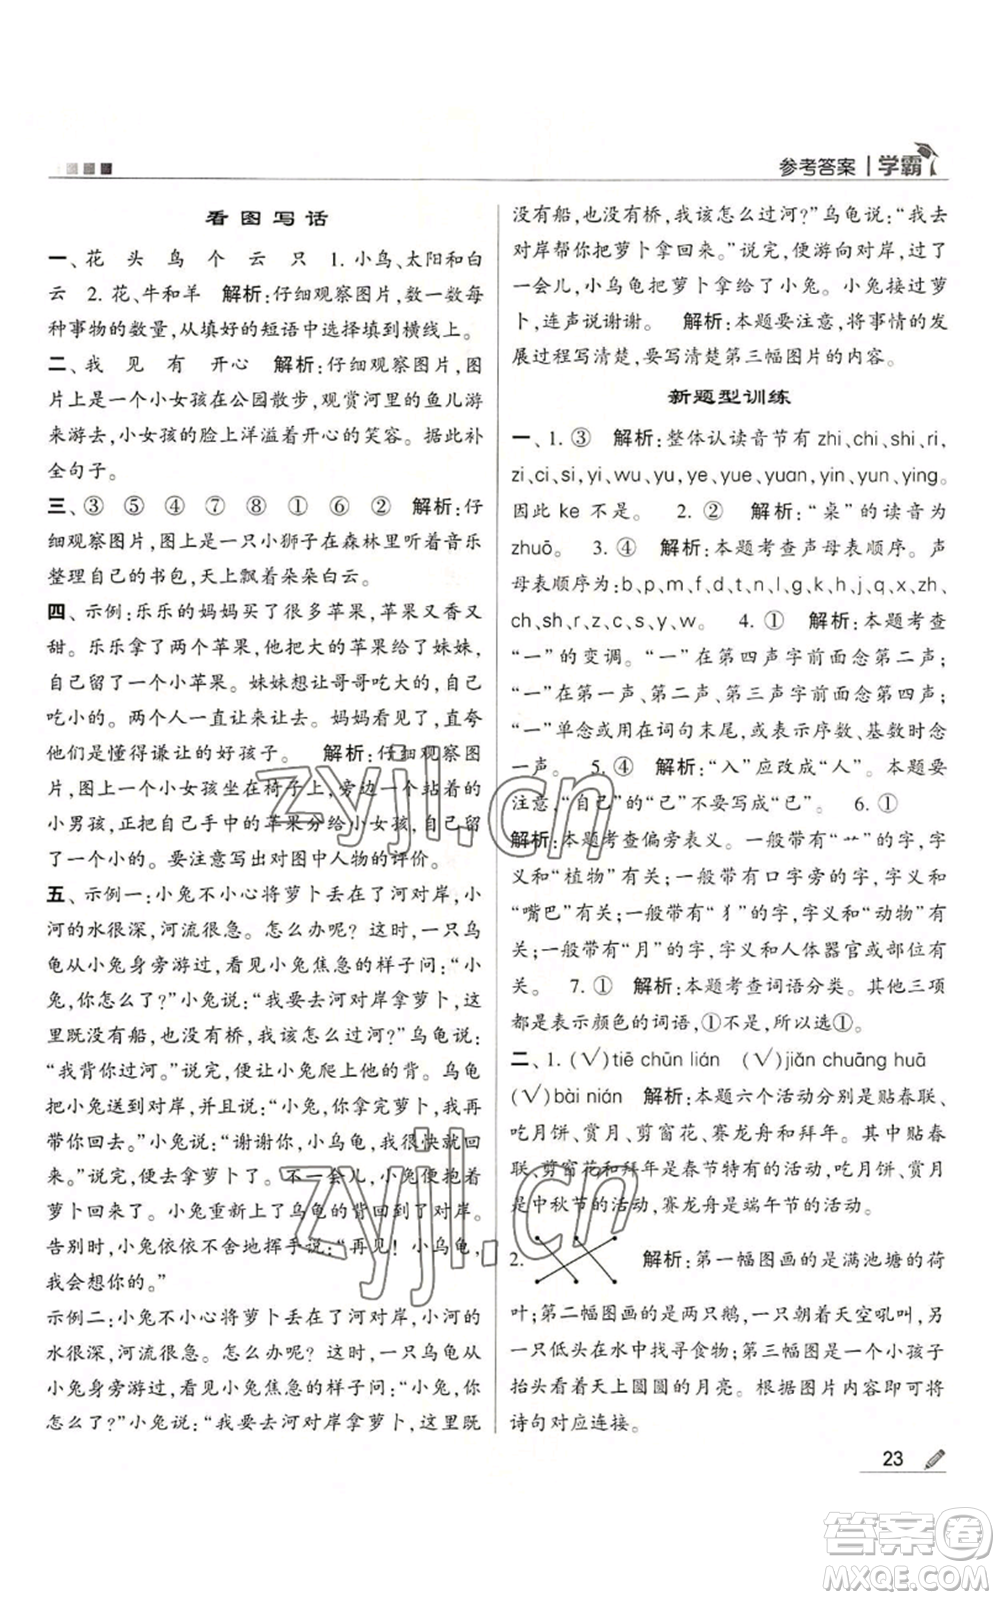 参考答案 | 学霸
看图写话
一、花 头 鸟 个 云 只 1. 小鸟、太阳和白
云 2. 花、牛和羊 解析:仔细观察图片,数一数每
种事物的数量,从填好的短语中选择填到横线上。
二、我 见 有 开心 解析:仔细观察图片,图
片上是一个小女孩在公园散步,观赏河里的鱼儿游
来游去,小女孩的脸上洋溢着开心的笑容。据此补
全句子。
三、③ ⑤ ④ ⑦ ⑧ ① ⑥ ② 解析:仔
细观察图片,图上是一只小狮子在森林里听着音乐
整理自己的书包,天上飘着朵朵白云。
四、示例:乐乐的妈妈买了很多苹果,苹果又香又
甜。乐乐拿了两个苹果,他把大的苹果给了妹妹,
自己留了一个小苹果。妹妹想让哥哥吃大的,自己
吃小的。两个人一直让来让去。妈妈看见了,直夸
他们是懂得谦让的好孩子。 解析:仔细观察图
片,图上一个小女孩坐在椅子上,旁边一个站着的
小男孩,正把自己手中的苹果分给小女孩,自己只
留了一个小的。要注意写出对图中人物的评价。
五、示例一:小兔不小心将萝卜丢在了河对岸,小
河的水很深,河流很急。怎么办呢?这时,一只乌
龟从小兔身旁游过,看见小兔焦急的样子问:“小
兔,你怎么了?”小兔说:“我要去河对岸拿萝卜,这
里既没有船,也没有桥,我该怎么过河?”乌龟说:
“我背你过河。”说完,便让小兔爬上他的背。乌龟
把小兔送到对岸,说:“小兔,你拿完萝卜,我再
带你回去。”小兔说:“谢谢你,小乌龟,我很快就回
来。”说完,便去拿萝卜了。不一会儿,小兔拿着
萝卜回来了。小兔重新上了乌龟的背回到了对岸。
告别时,小兔依依不舍地挥手说:“再见!小乌龟,
我会想你的。”
示例二:小兔不小心将萝卜丢在了河对岸,小河的
水很深,河流很急。怎么办呢?这时,一只乌龟从
小兔身旁游过,看见小兔焦急的样子问:“小兔,你
怎么了?”小兔说:“我要去河对岸拿萝卜,这里既
没有船,也没有桥,我该怎么过河?”乌龟说:“我去
对岸帮你把萝卜拿回来。”说完,便游向对岸,过了
一会儿,小乌龟把萝卜拿给了小兔。小兔接过萝
卜,连声说谢谢。 解析:本题要注意,将事情的发
展过程写清楚,要写清楚第三幅图片的内容。
新题型训练
一、1. ③ 解析:整体认读音节有 zhi、chi、shi、ri、
zi、ci、si、yi、wu、yu、ye、yue、yuan、yin、yun、ying。
因此 ke 不是。 2. ② 解析:“桌”的读音为
zhuō。 3. ④ 解析:本题考查声母表顺序。声
母表顺序为:b、p、m、f、d、t、n、l、g、k、h、j、q、x、zh、
ch、sh、r、z、c、s、y、w。 4. ① 解析:本题考查
“一”的变调。“一”在第四声字前面念第二声;
“一”在第一声、第二声、第三声字前面念第四声;
“一”单念或在词句末尾,或表示序数、基数时念
一声。 5. ④ 解析:“入”应改成“人”。本题要
注意,“自己”的“己”不要写成“已”。 6. ①
解析:本题考查偏旁表义。一般带有“艹”的字,字
义和“植物”有关;一般带有口字旁的字,字义和
“嘴巴”有关;一般带有“犭”的字,字义和“动物”有
关;一般带有“月”的字,字义和人体器官或部位有
关。 7. ① 解析:本题考查词语分类。其他三项
都是表示颜色的词语,①不是,所以选①。
二、1. (√)tiē chūn lián (√)jiǎn chuāng huā
(√)bài nián 解析:本题六个活动分别是贴春联、
吃月饼、赏月、剪窗花、赛龙舟和拜年。其中贴春
联、剪窗花和拜年是春节特有的活动,吃月饼、赏月
是中秋节的活动,赛龙舟是端午节的活动。
2. 解析:第一幅图画的是满池塘的荷
叶;第二幅图画的是两只鹅,一只朝着天空吼叫,另
一只低头在水中找寻食物;第三幅图是一个小孩子
抬头看着天上圆圆的月亮。根据图片内容即可将
诗句对应连接。
23
zyjl.cn
zyjl.cn
答案圈
MXQE.COM